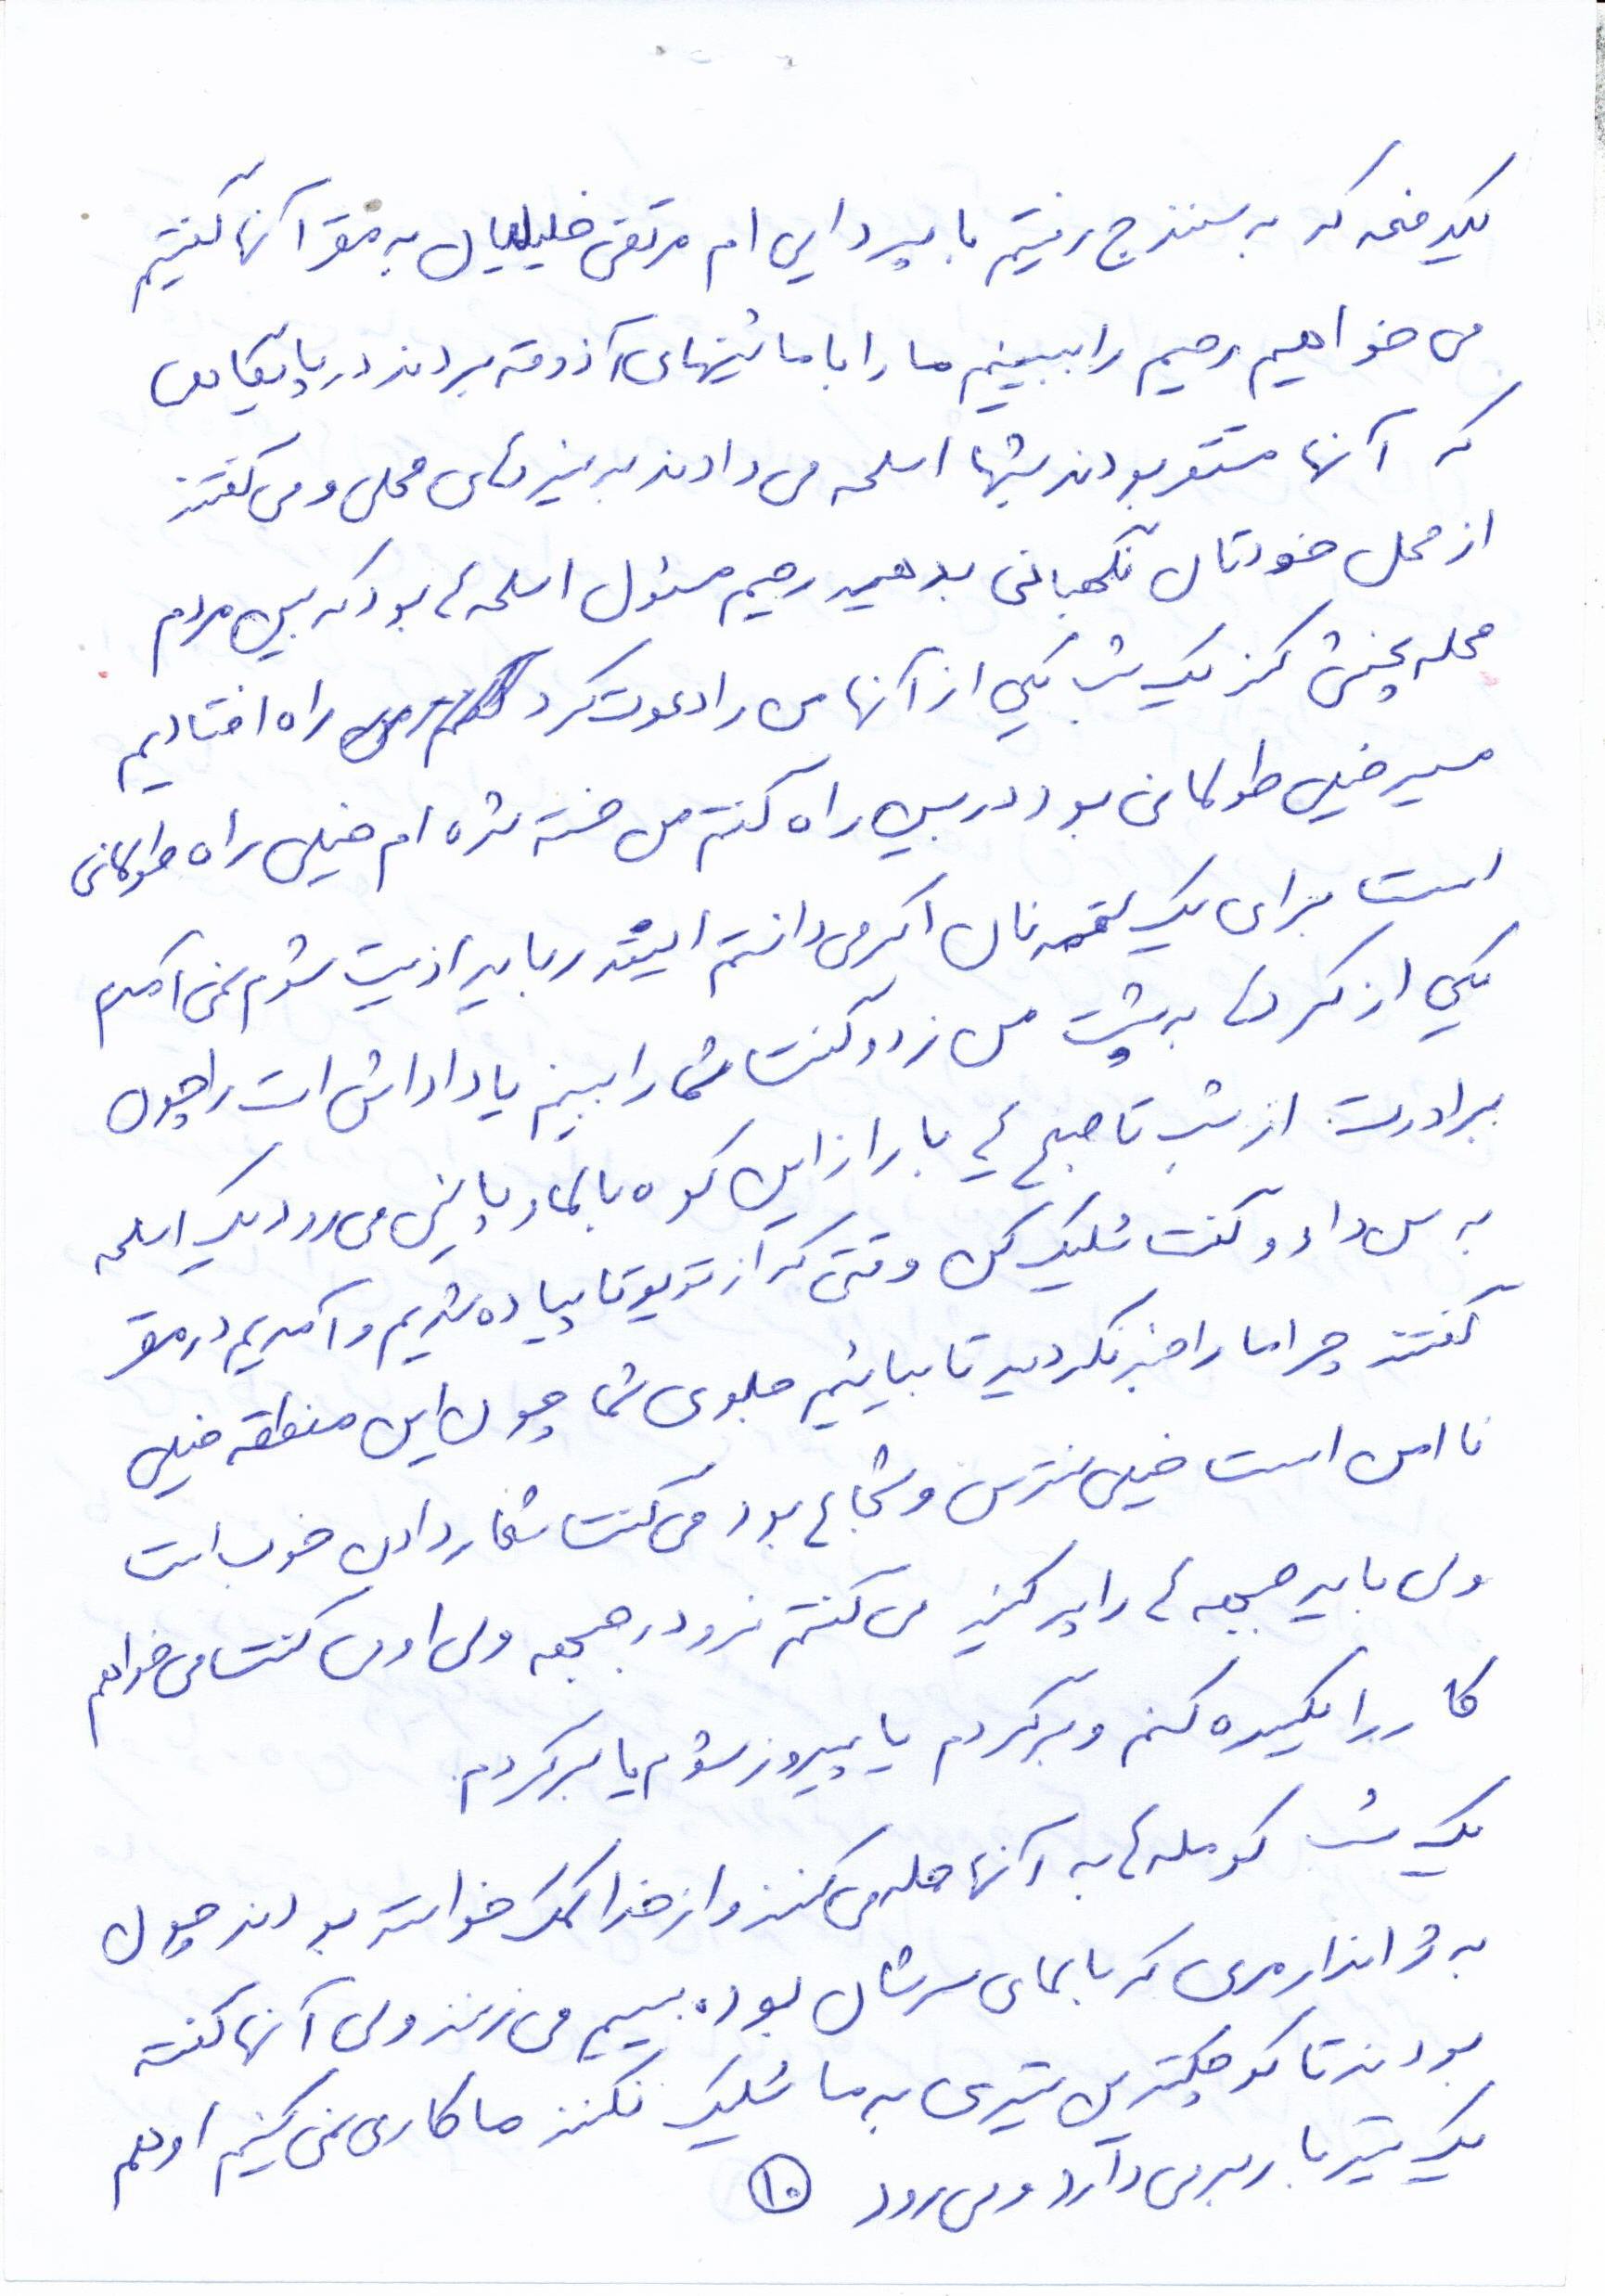 یکدفعه که به سنندج رفتیم با پسر دایی ام مرتضی خلیلیان به مقر آنها گفتیم
می خواهیم رحیم را ببینیم ما را با ماشینهای آذوقه بردند در پایگاهی
که آنها مستقر بودند شبها اسلحه می دادند به نیروهای محلی و می گفتند
از محل خودتان نگهبانی بدهید رحیم مسئول اسلحه ها بود که بین مردم
محله پخش کند یک شب یکی از آنها من را دعوت کرد راه افتادیم
مسیر خیلی طولانی بود در بین راه گفتم من خسته شده ام خیلی راه طولانی
است برای یک لقمه نان اگر می دانستم اینقدر باید اذیت شوم نمی آمدم
یکی از کردها به پشت من زد و گفت شما را ببینم یا داداش ات را چون
برادرت از شب تا صبح ۴ بار از این کوه بالا و پائین می رود یک اسلحه
به من داد و گفت شلیک کن وقتی که از تویوتا پیاده شدیم و آمدیم در مقر
گفتند چرا ما را خبر نکردید تا بیائیم جلوی شما چون این منطقه خیلی
نا امن است خیلی نترس و شجاع بود می گفت شعار دادن خوب است
ولی باید جبهه ها را پر کنید می گفتم نرو در جبهه ولی او می گفت می خواهم
کار را یکسره کنم و برگردم یا پیروز شوم یا برگردم.
یک شب کومله ها به آنها حمله می کنند و از خدا کمک خواسته بودند چون
به ژاندارمری که بالای سرشان بوده بیسیم می زنند ولی آنها گفته
بودند تا کوچکترین تیری به ما شلیک نکنند ما کاری نمی کنیم او هم
یک تیربار بر می دارد و می رود ۱۰